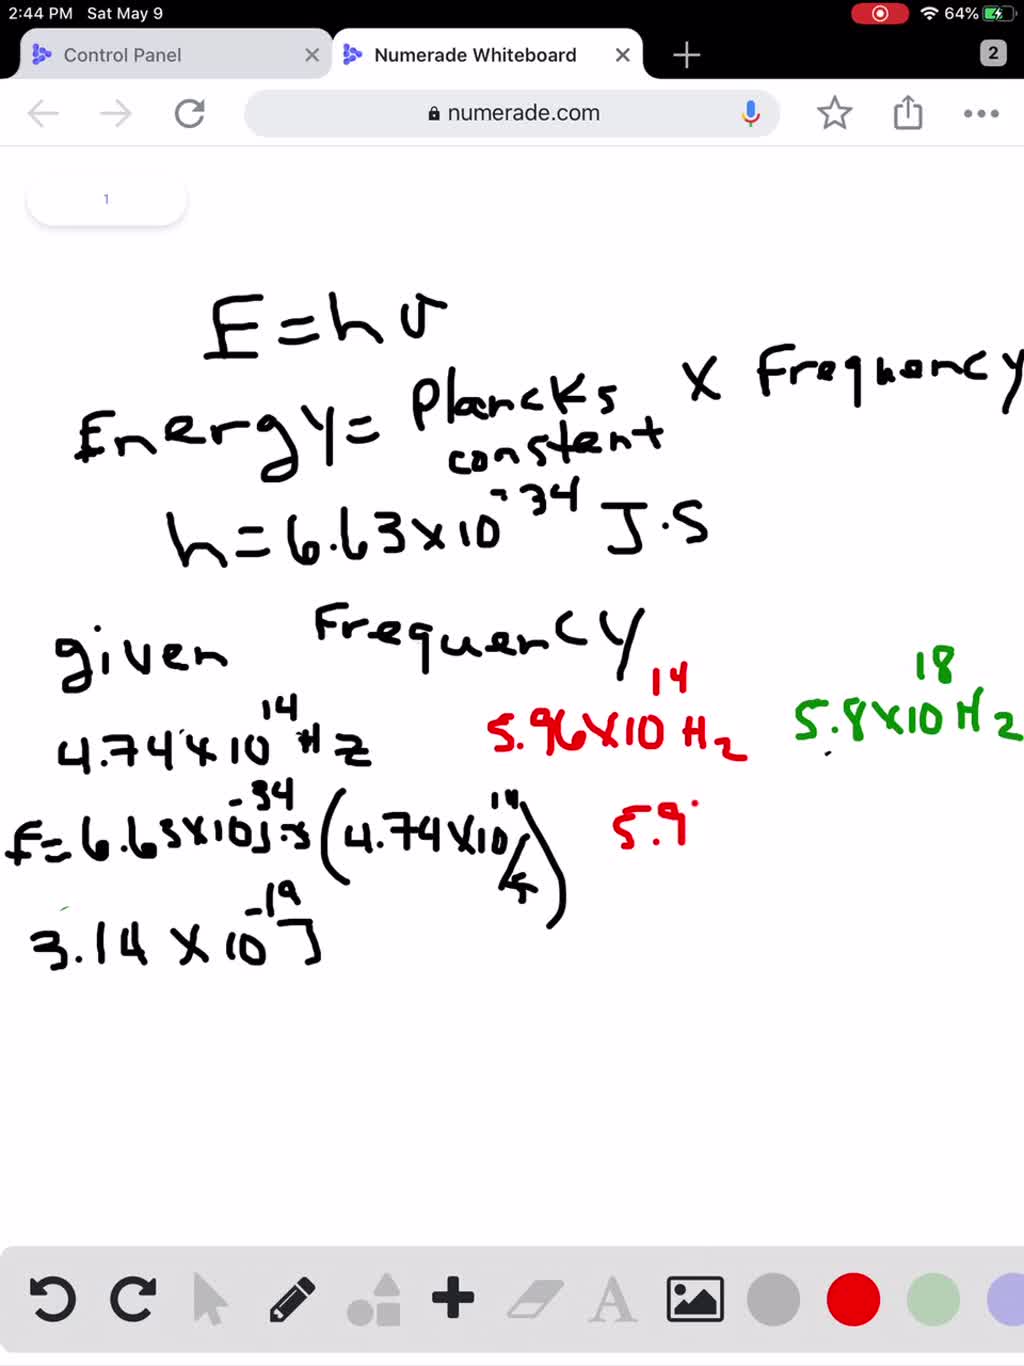 2:44 PM Sat May 9 64%
Control Panel Numerade Whiteboard 2
numerade.com
1
E = h υ
Energy = Plancks constent x Frequency
h = 6.63 x 10⁻³⁴ J·S
given Frequency
4.74 x 10¹⁴ Hz 5.96 x 10¹⁴ Hz 5.8 x 10¹⁸ Hz
E = 6.63 x 10⁻³⁴ J·s (4.74 x 10¹⁴/s) 5.9
3.14 x 10⁻¹⁹ J
A